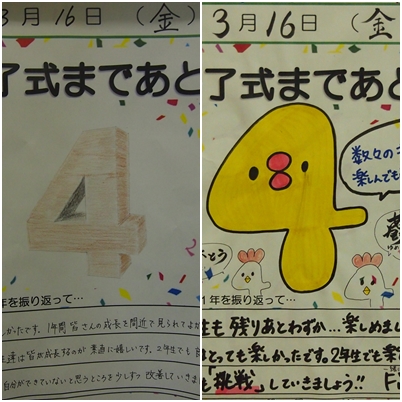 3月16日（金）
了式まであと
4
年を振り返って…
かったです。1年間皆さんの成長を間近で見られてよか
達は皆が成長するのが素直に嬉しいです。2年生でも
自分ができていないと思うところを少しずつ改善していきま
3月16日（金
了式まであと
4
数々の
楽しんでも
とう
1年を振り返って…
も残りあとわずか…楽しめまし
とっても楽しかったです。2年生でも楽
も「挑戦」していきましょう!!